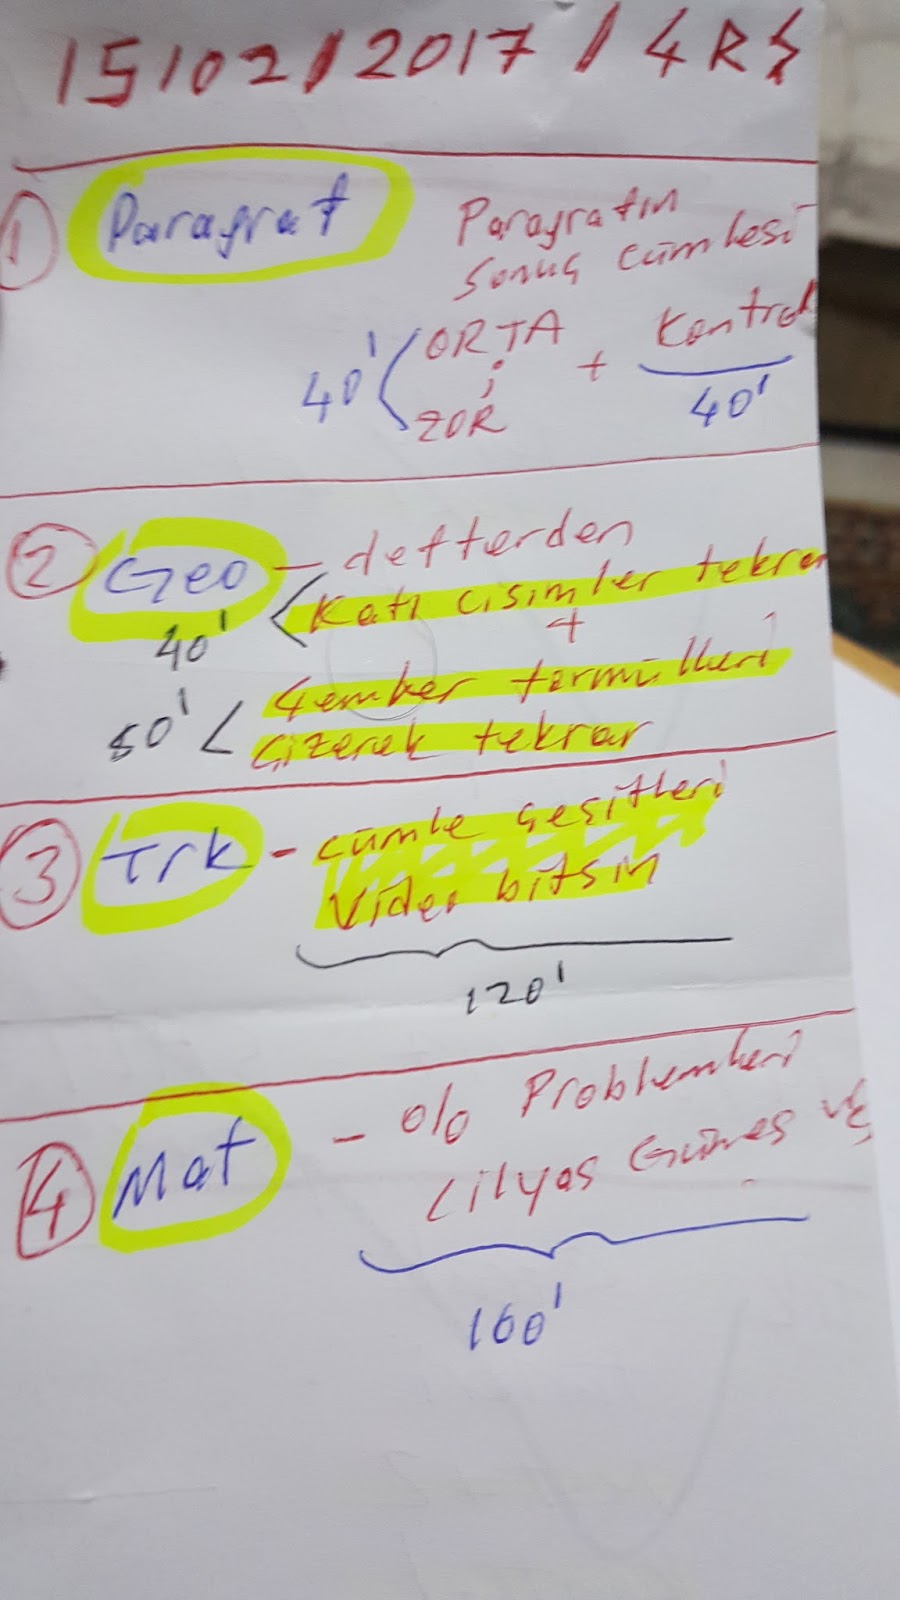 15/02/2017 / ÇRŞ
1 Paragraf Paragrafın
sonuç cümlesi
40' ORTA + Kontrol
ZOR 40'
2 Geo - defterden
Katı cisimler tekrar
40' +
Çember formülleri
50' Çizerek tekrar
3 Trk - cümle çeşitleri
Video bitsin
120'
4 Mat - % Problemleri
İlyas Güneş
160'